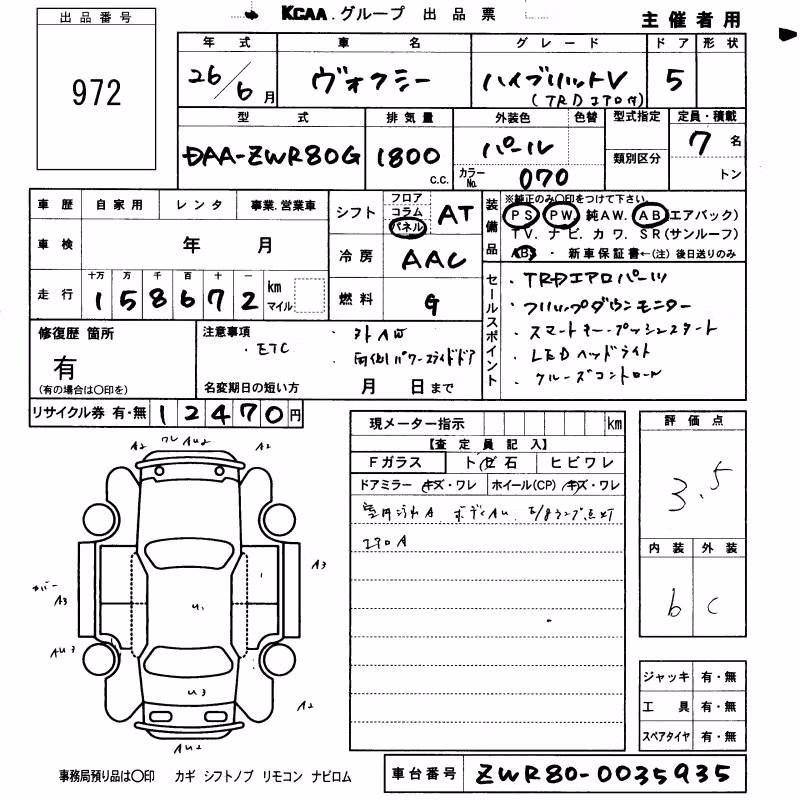 KCAA.グループ 出品票
主催者用
出品番号
972
年式 車名 グレード ドア 形状
26/6月 ヴォクシー ハイブリットV (TRDエアロ付) 5
型式 排気量 外装色 色替 型式指定 定員・積載
DAA-ZWR80G 1800 C.C. パール カラーNo. 070 類別区分 7名 トン
車歴 自家用 レンタ 事業.営業車
車検 年 月
走行 十万 万 千 百 十 一 km マイル
158672
シフト フロア コラム パネル AT
冷房 AAC
燃料 G
装備品 ※純正のみ〇印をつけて下さい。
PS PW 純AW. AB(エアバック)
TV. ナビ. カワ. SR(サンルーフ)
ABS ・ 新車保証書←(注) 後日送りのみ
セールスポイント
・TRDエアロパーツ
・フリップダウンモニター
・スマートキー・プッシュスタート
・LEDヘッドライト
・クルーズコントロール
修復歴 箇所
有
(有の場合は〇印を)
注意事項
・ETC
・両側パワースライドドア
名変期日の短い方 月 日まで
リサイクル券 有・無 12470円
現メーター指示 km
【査定員記入】
Fガラス トビ石 ヒビワレ
ドアミラー キズ・ワレ ホイール(CP) キズ・ワレ
エアロA
評価点
3.5
内装 外装
b c
ジャッキ 有・無
工具 有・無
スペアタイヤ 有・無
A2 ワレ AU2 A2
A3
カバー
A3
U1
AU3
U3
A2
AU2
事務局預り品は〇印 カギ シフトノブ リモコン ナビロム
車台番号 ZWR80-0035935